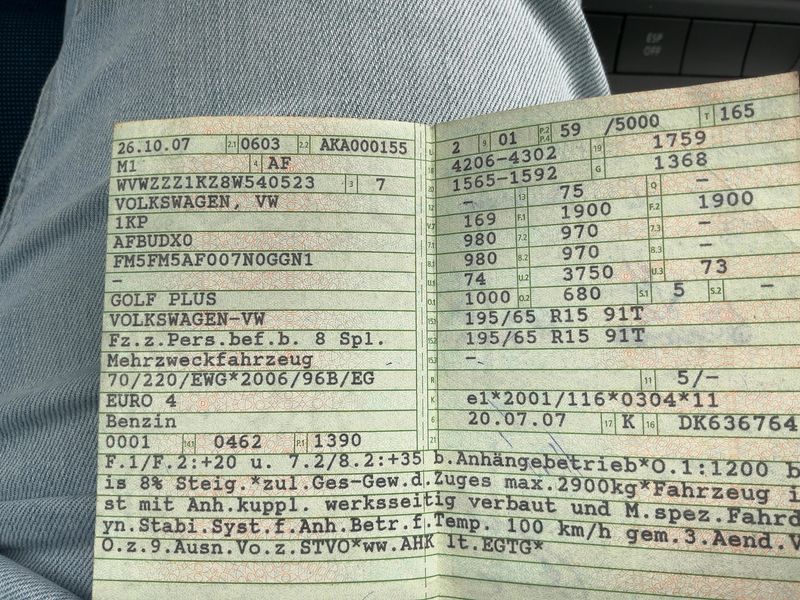 ESP
OFF
26.10.07 2.1 0603 2.2 AKA000155
M1 4 AF
WVWZZZ1KZ8W540523 3 7
VOLKSWAGEN, VW
1KP
AFBUDX0
FM5FM5AF007N0GGN1
–
GOLF PLUS
VOLKSWAGEN-VW
Fz.z.Pers.bef.b. 8 Spl.
Mehrzweckfahrzeug
70/220/EWG*2006/96B/EG
EURO 4
Benzin
0001 14.1 0462 P.1 1390
L 2 9 01 P.2 P.4 59 /5000 T 165
18 4206-4302 19 1759
20 1565-1592 G 1368
12 – 13 75 Q –
V.7 169 F.1 1900 F.2 1900
7.1 980 7.2 970 7.3 –
8.1 980 8.2 970 8.3 –
U.1 74 U.2 3750 U.3 73
O.1 1000 O.2 680 S.1 5 S.2 –
15.1 195/65 R15 91T
15.2 195/65 R15 91T
15.3 –
R 11 5/–
K e1*2001/116*0304*11
6 20.07.07 17 K 16 DK636764
21
F.1/F.2:+20 u. 7.2/8.2:+35 b.Anhängebetrieb*O.1:1200 b
is 8% Steig.*zul.Ges-Gew.d.Zuges max.2900kg*Fahrzeug i
st mit Anh.kuppl. werksseitig verbaut und M.spez.Fahrd
yn.Stabi.Syst.f.Anh.Betr.f.Temp. 100 km/h gem.3.Aend.V
O.z.9.Ausn.Vo.z.STVO*ww.AHK lt.EGTG*